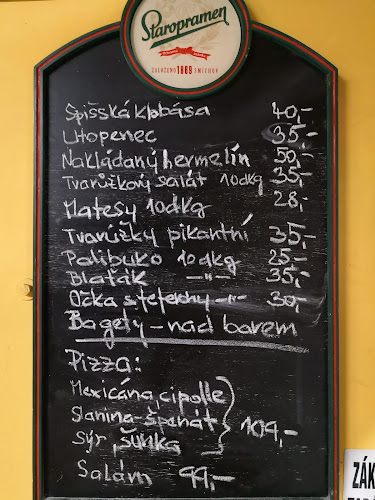 Staropramen
ZALOŽENO 1869 SMÍCHOV
Spišská klobása 40,-
Utopenec 35,-
Nakládaný hermelín 50,-
Tvarůžkový salát 10dkg 35,-
Matesy 10dkg 28,-
Tvarůžky pikantní 35,-
Palibuko 10dkg 25-
Blaťák —"— 35,-
Očka s tefechy -"- 30,-
Bagety - nad barem
Pizza:
Mexicána, cipolle
Slanina-špenát 109,-
Sýr, šunka
Salám 99,-
ZÁK